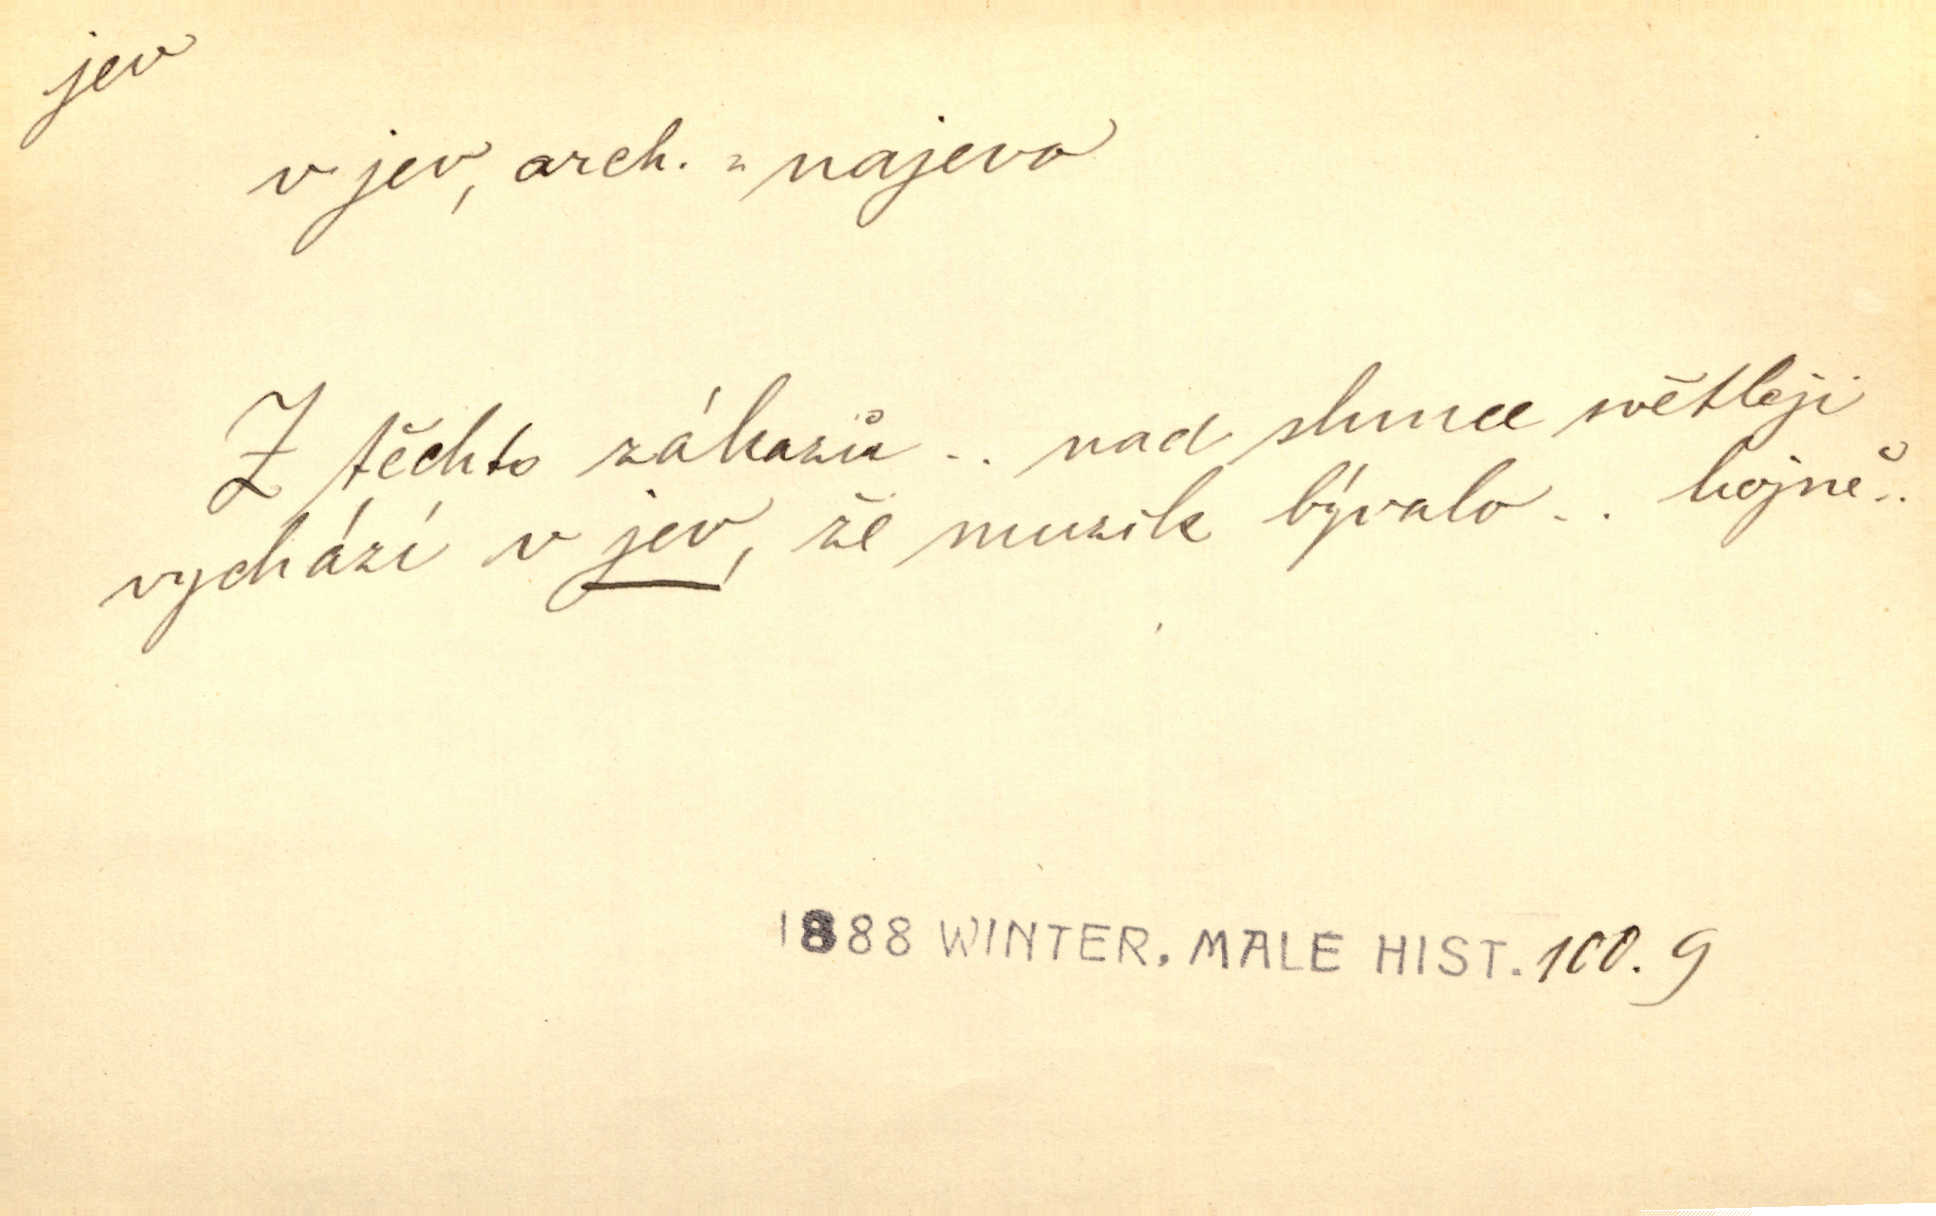 jev
v jev, arch. = najevo
Z těchto zákazů .. nad slunce světleji
vychází v jev, že muzik bývalo .. hojně ..
1888 WINTER, MALE HIST. 100. 9